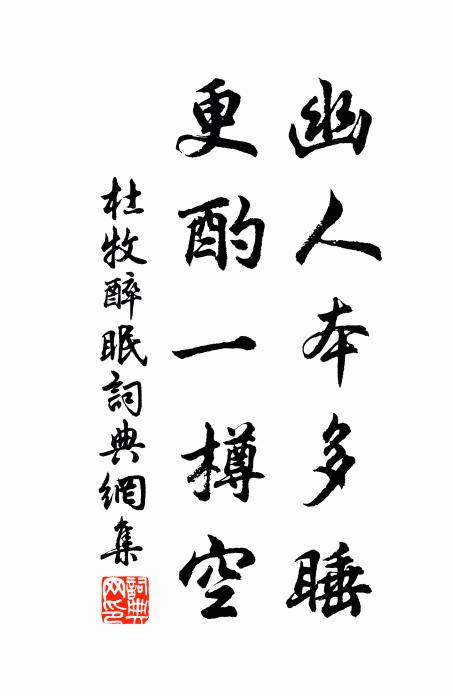 幽人本多睡
更酌一樽空
杜牧醉眠詞典網集
詞典網印